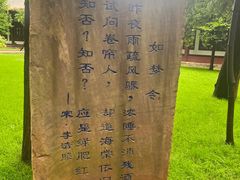 如梦令
昨夜雨疏风骤，浓睡不消残酒
试问卷帘人，却道海棠依
知否？知否？应是绿肥红
—宋·李清照